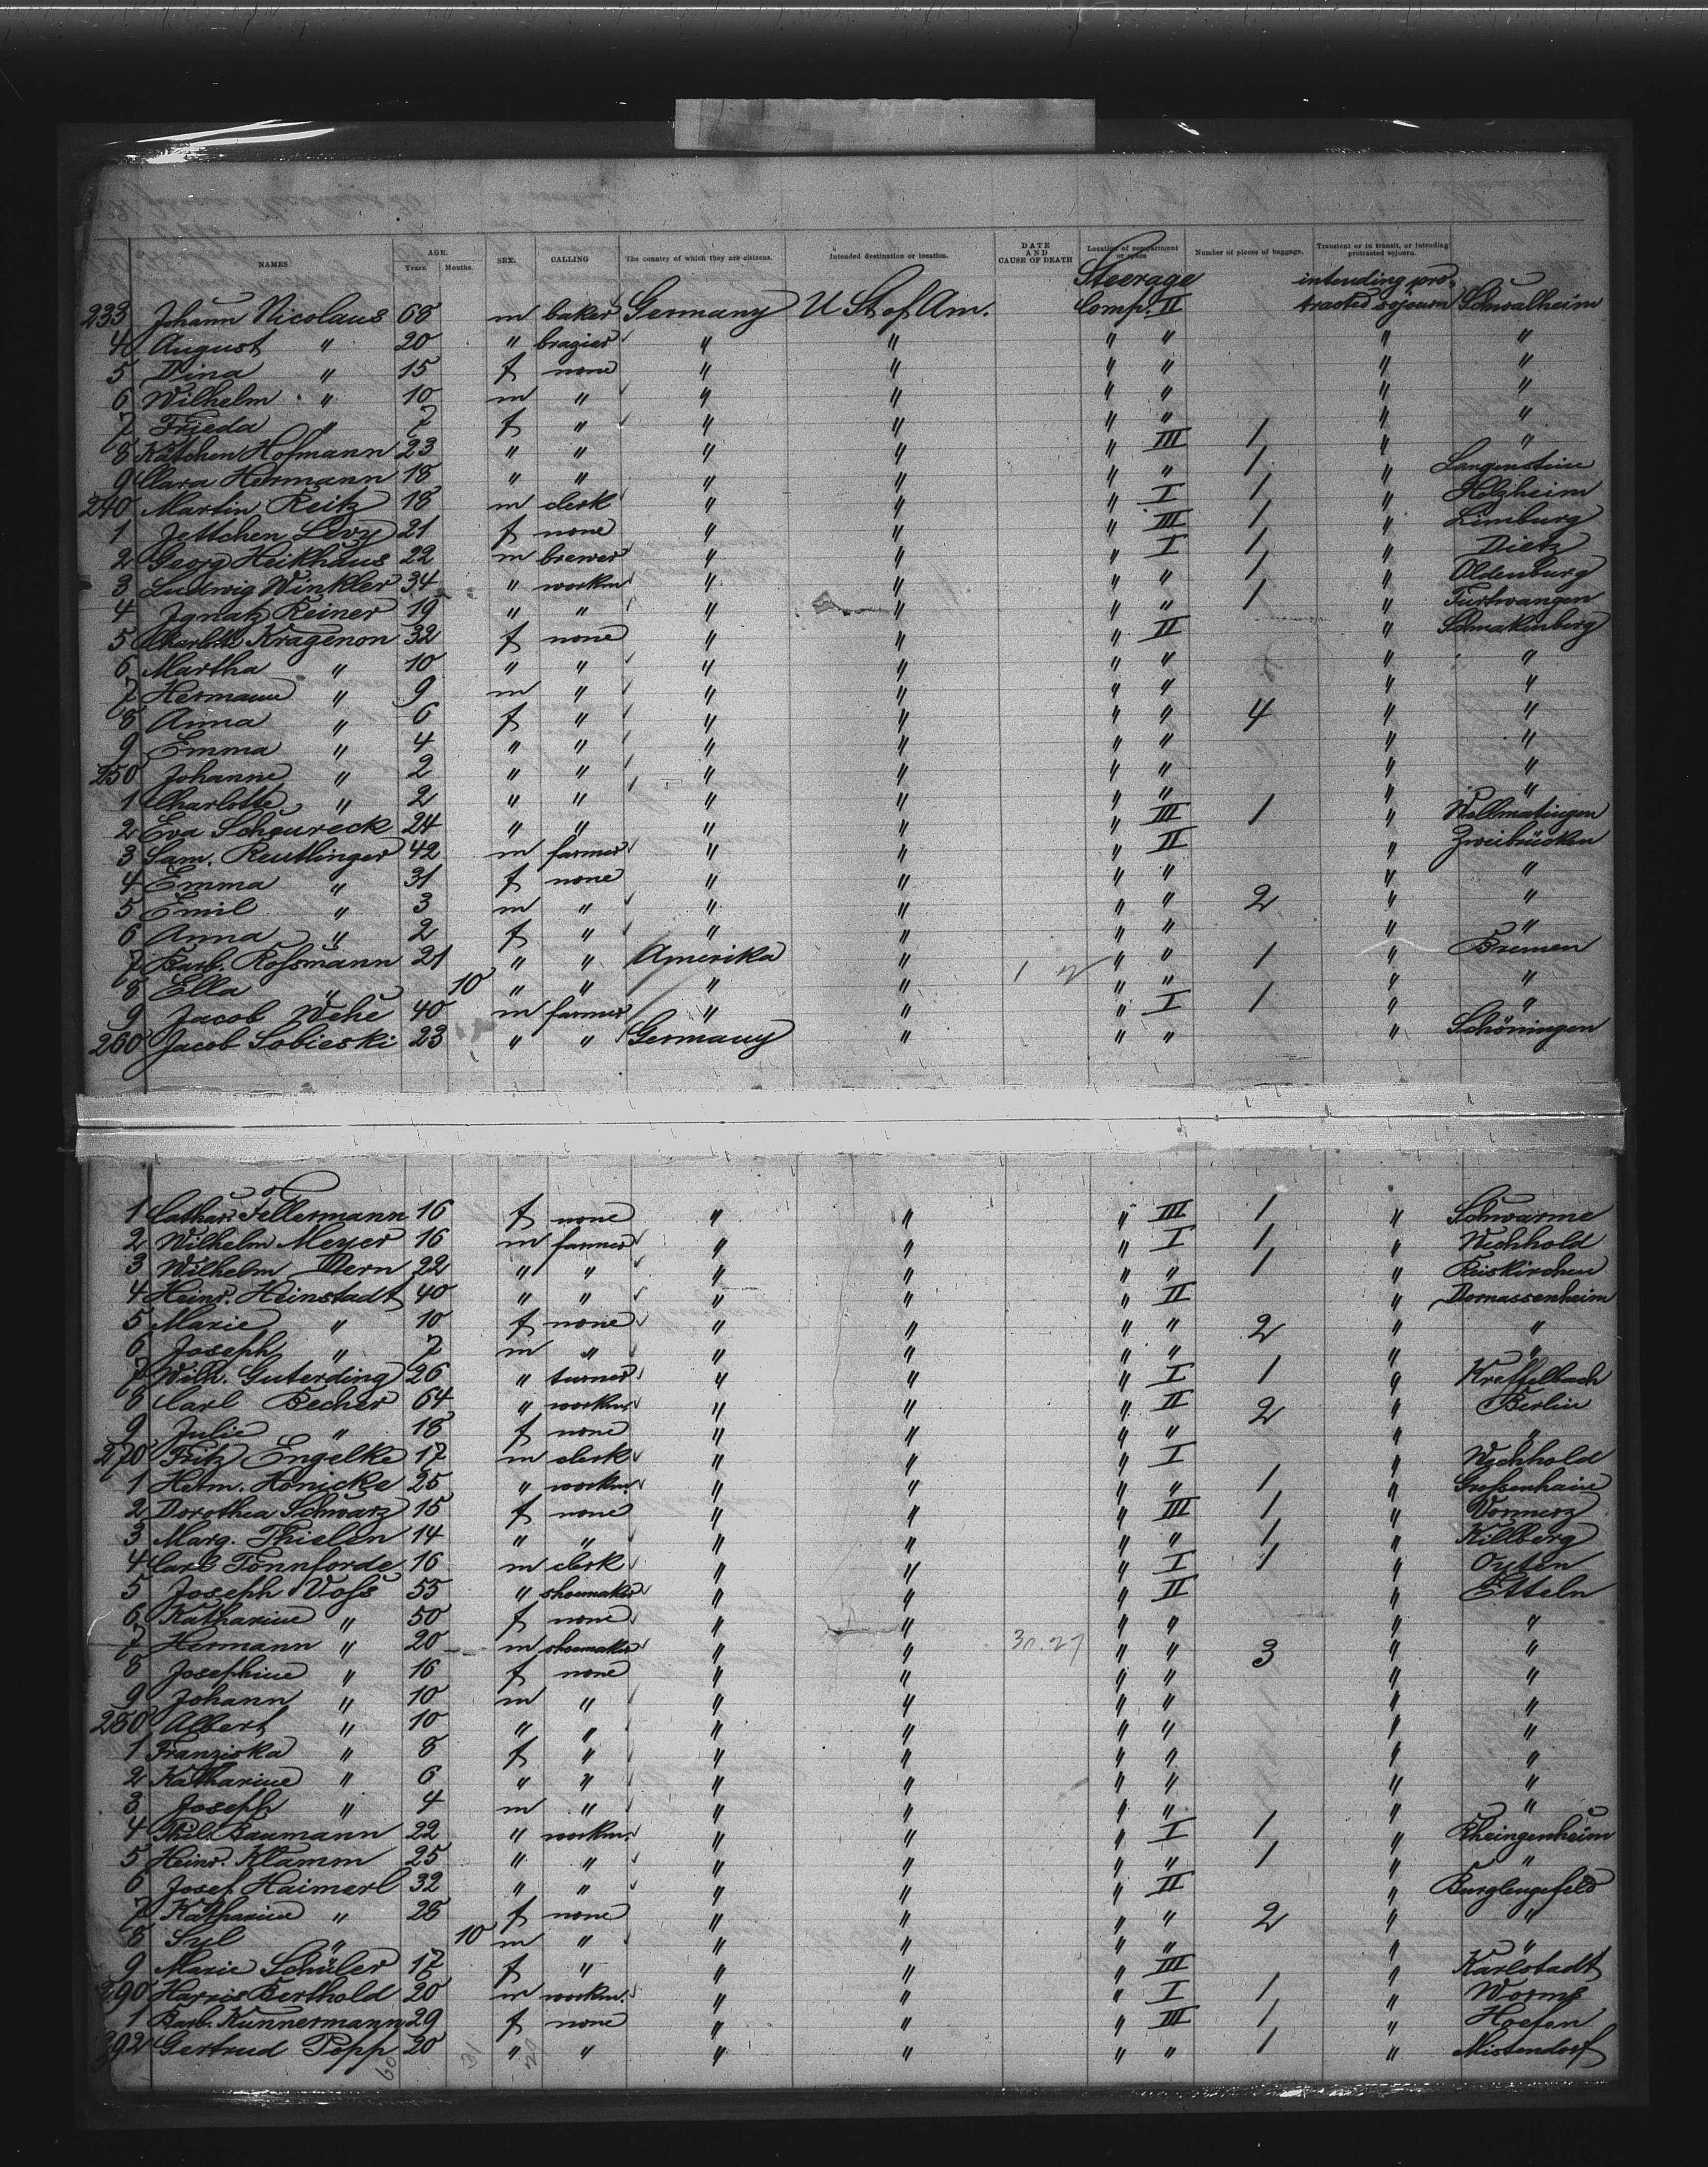 NAMES AGE. Years. Months. SEX. CALLING The country of which they are citizens. Intended destination or location. DATE AND CAUSE OF DEATH Location of compartment or space Number of pieces of baggage. Transient or in transit, or intending protracted sojourn.
Steerage intending pro-
233 Johann Nicolaus 68 m baker Germany U St of Am. Comp. II tracted sojourn Schwalheim
4 August " 20 " brazier " " " " " "
5 Dina " 15 f none " " " " " "
6 Wilhelm " 10 m " " " " " " "
7 Frieda " 7 f " " " " " " "
8 Kätchen Hofmann 23 " " " " " III 1 " "
9 Clara Hermann 18 " " " " " " 1 " Langenstein
240 Martin Reitz 18 m clerk " " " I 1 " Holzheim
1 Jettchen Levy 21 f none " " " III 1 " Limburg
2 Georg Heikhaus 22 m brewer " " " I 1 " Dietz
3 Ludwig Winkler 34 " workm " " " " 1 " Oldenburg
4 Ignatz Reiner 19 " " " " " " 1 " Furtwangen
5 Charlotte Kragenon 32 f none " " " II " Schmakenberg
6 Martha " 10 " " " " " " " "
7 Hermann " 9 m " " " " " " "
8 Anna " 6 f " " " " " 4 " "
9 Emma " 4 " " " " " " " "
250 Johanne " 2 " " " " " " " "
1 Charlotte " 2 " " " " " " " "
2 Eva Scheureck 24 " " " " " III 1 " Wollmatingen
3 Sam. Reutlinger 42 m farmer " " " II " Zweibrücken
4 Emma " 31 f none " " " " " "
5 Emil " 3 m " " " " " 2 " "
6 Anna " 2 f " " " " " " "
7 Barb. Roßmann 21 " " Amerika " " " 1 " Bremen
8 Ella " 10 " " " " " " " "
9 Jacob Wehe 40 m farmer " " " I 1 " "
260 Jacob Sobieski 23 " " Germany " " " " Schöningen
1 Cathar. Fellermann 16 f none " " " III 1 " Schwarme
2 Wilhelm Meyer 16 m farmer " " " I 1 " Wechhold
3 Wilhelm Dern 22 " " " " " " 1 " Reiskirchen
4 Heinr. Heinstadt 40 " " " " " II " Dornassenheim
5 Marie " 10 f none " " " " 2 " "
6 Joseph " 7 m " " " " " " "
7 Wilh. Guterding 26 " turner " " " I 1 " Kreffelbach
8 Carl Becher 64 " workm. " " " II 2 " Berlin
9 Julie " 18 f none " " " " " "
270 Fritz Engelke 17 m clerk " " " I " Wechhold
1 Herm. Honicke 25 " workm. " " " " 1 " Großenhain
2 Dorothea Schwarz 15 f none " " " III 1 "
3 Marg. Thielen 14 " " " " " " 1 " Killberg
4 Carl Tonnforde 16 m clerk " " " I 1 " Oyten
5 Joseph Voß 55 " shoemaker " " " II " Etteln
6 Katharine " 50 f none " " " " " "
7 Hermann " 20 m shoemaker " " " " 3 " "
8 Josephine " 16 f none " " " " " "
9 Johann " 10 m " " " " " " "
280 Albert " 10 " " " " " " " "
1 Franziska " 8 f " " " " " " "
2 Katharine " 6 " " " " " " " "
3 Joseph " 4 m " " " " " " "
4 Phil. Baumann 22 " workm. " " " I 1 " Rheingenheim
5 Heinr. Klamm 25 " " " " " " 1 " "
6 Josef Haimerl 32 " " " " " II " Burglengefeld
7 Katharine " 28 f none " " " " 2 " "
8 Syl " 10 m " " " " " " "
9 Marie Schüler 17 f " " " " III " Karlstadt
290 Harris Berthold 20 m workm. " " " I 1 " Worms
1 Barb. Kunnermann 29 f none " " " III 1 " Hoefen
292 Gertrud Popp 20 " " " " " " 1 " Mistendorf